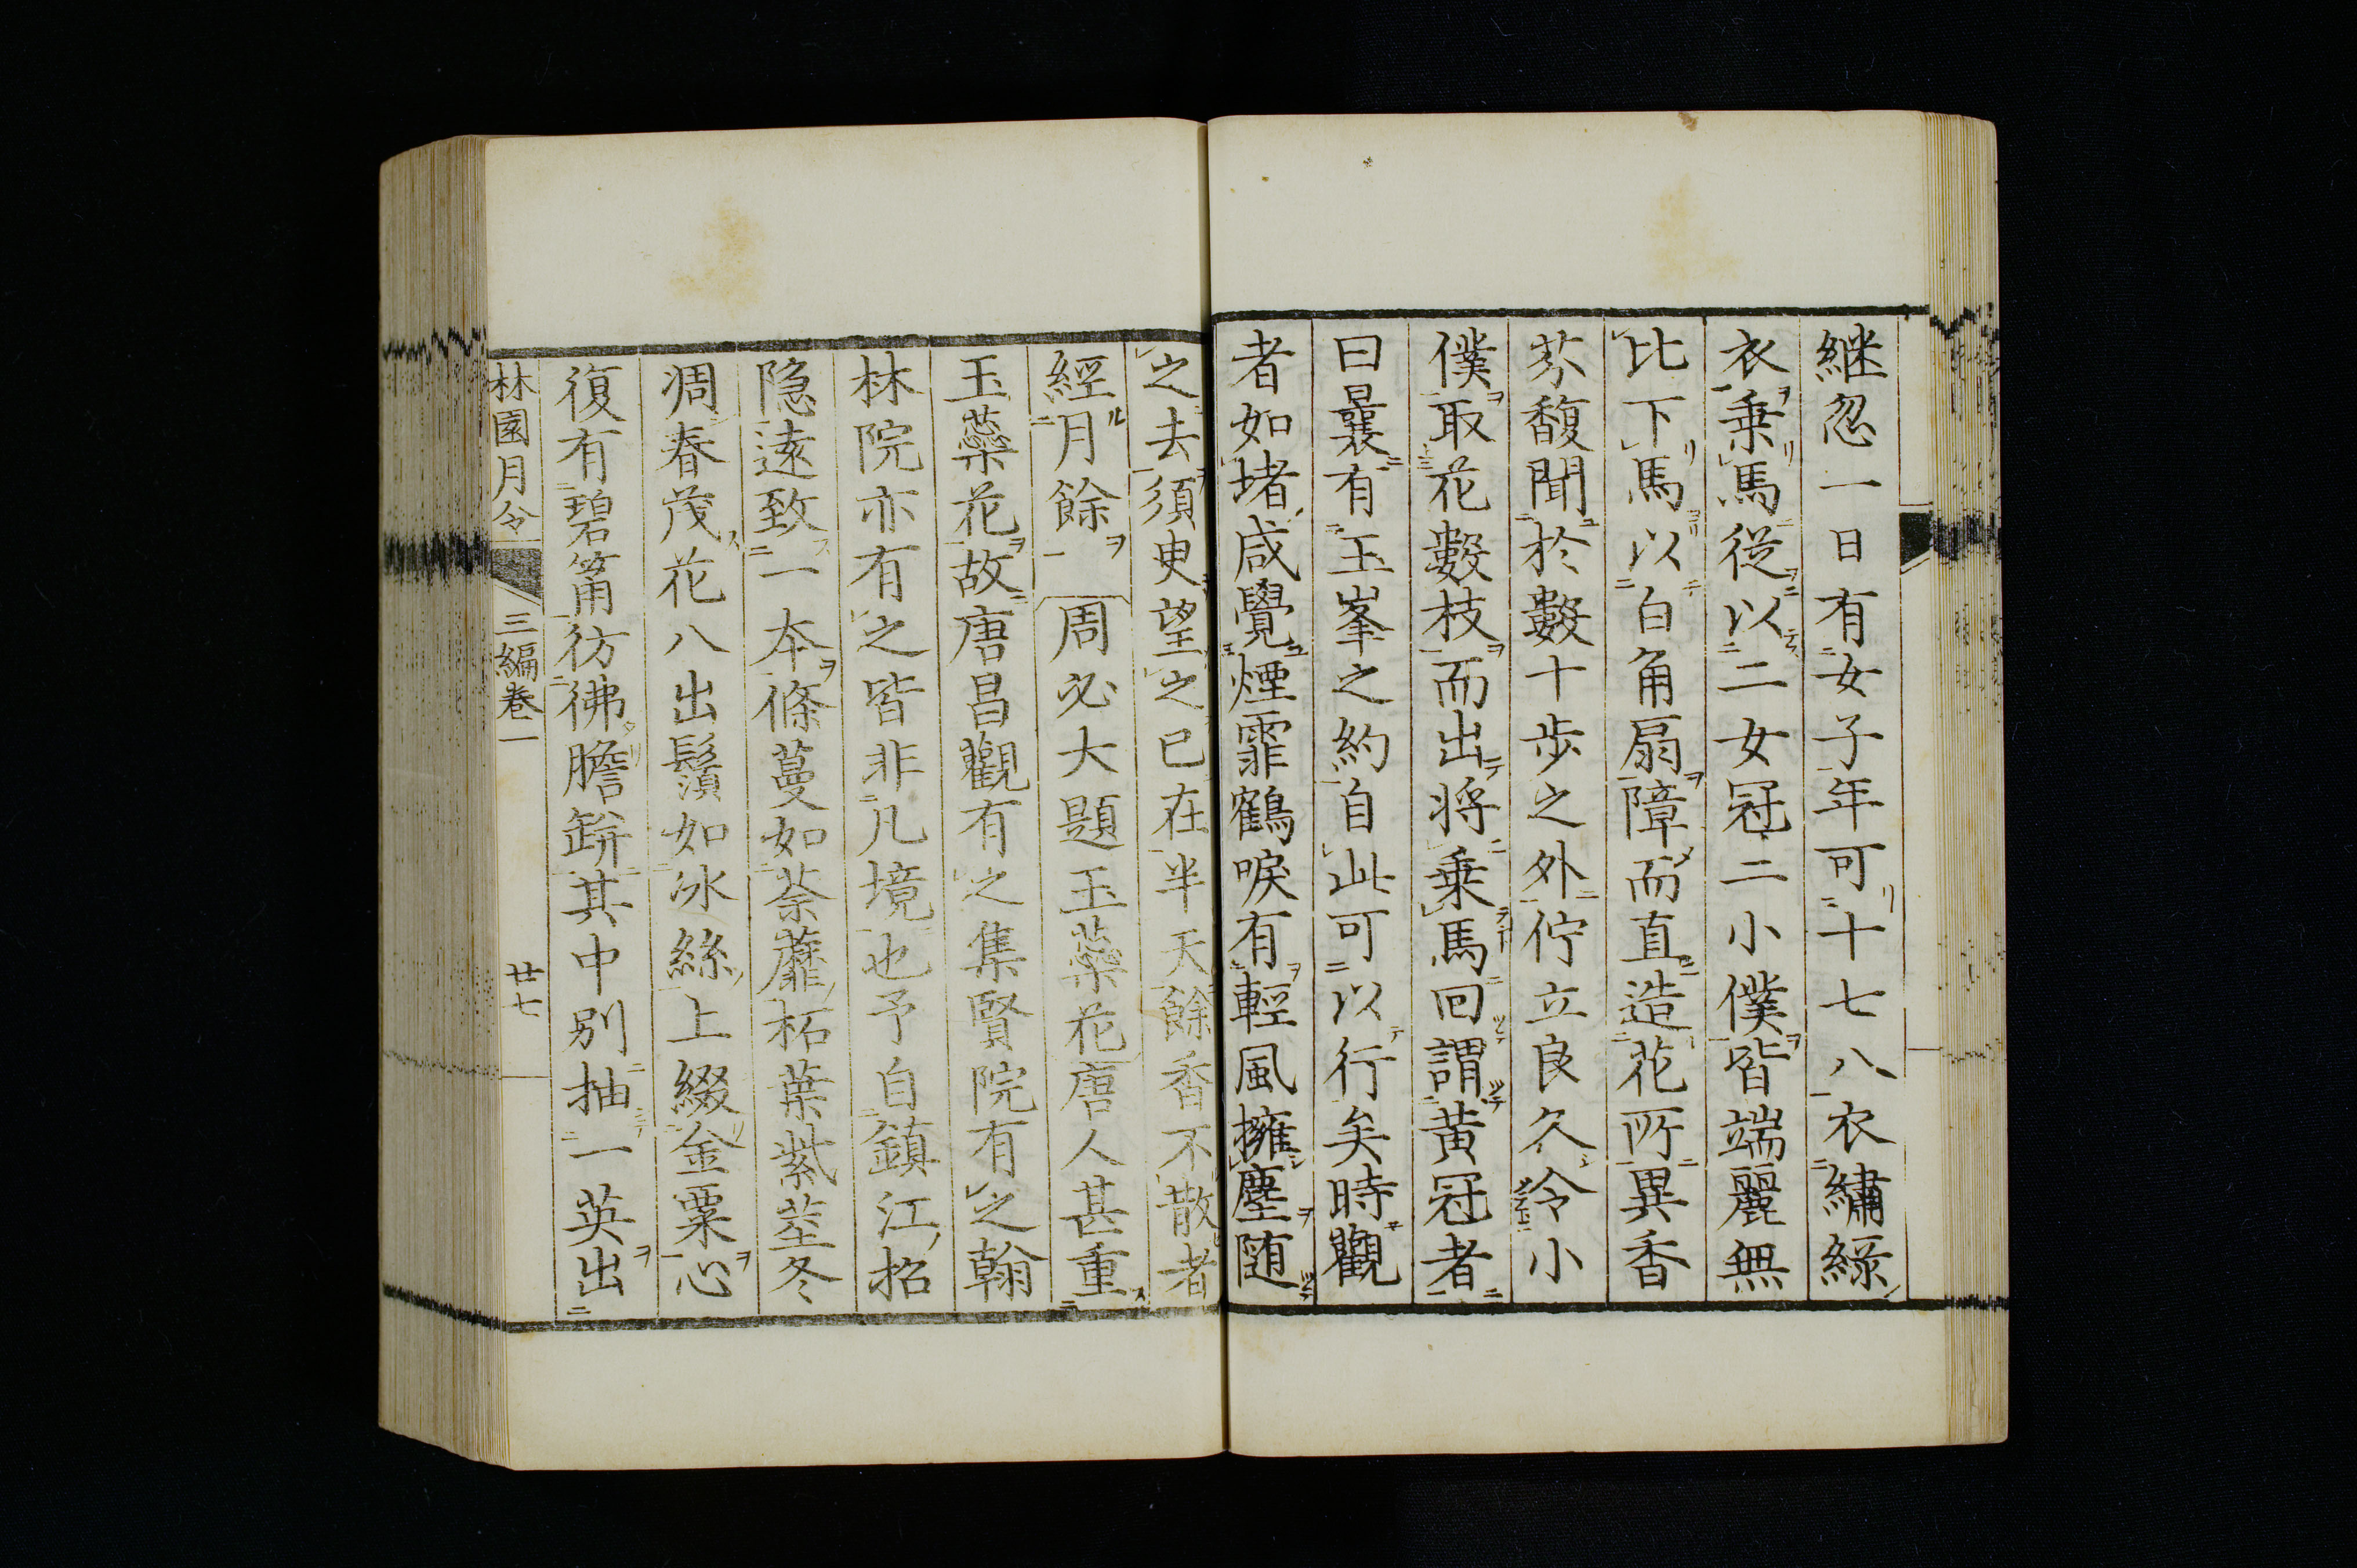 継忽一日有女子年可十七八衣繡緑
衣乗馬從以二女冠二小僕皆端麗無
比下馬以白角扇障而直造花所異香
芬馥聞於數十歩之外佇立良久令小
僕取花數枝而出将乗馬回謂黄冠者
曰曩有玉峯之約自此可以行矣時觀
者如堵咸覺煙霏鶴唳有輕風擁塵随
之去須臾望之已在半天餘香不散者
經月餘 周必大題玉蘂花 唐人甚重
玉蘂花故唐昌觀有之集賢院有之翰
林院亦有之皆非凡境也予自鎮江招
隐遠致一本條蔓如荼蘼柘葉紫莖冬
凋春茂花八出鬚如冰絲上綴金粟心
復有碧筩彷彿膽缾其中別抽一英出
林園月令 三編卷一 廿七